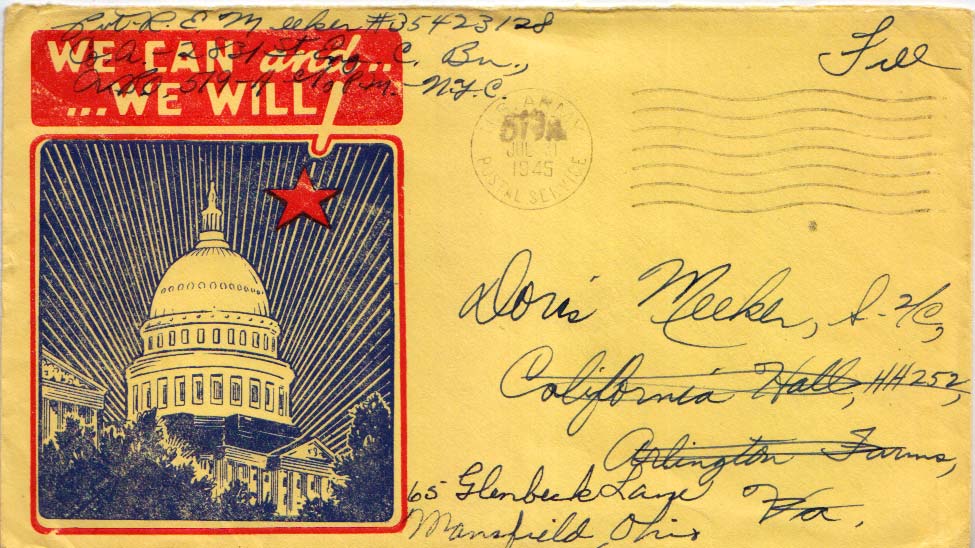 Pvt. R. E. Meeker #35423128
Co. A. - 2831st Eng. C. Bn.,
A.P.O. 519-A % P.M. - N.Y.C.
Free
WE CAN and...
...WE WILL!
U.S. ARMY
519A
JUL 31
1945
POSTAL SERVICE
Doris Meeker, S-2/C,
California Hall, HH252,
Arlington Farms,
Va.
65 Glenbeck Lane
Mansfield, Ohio